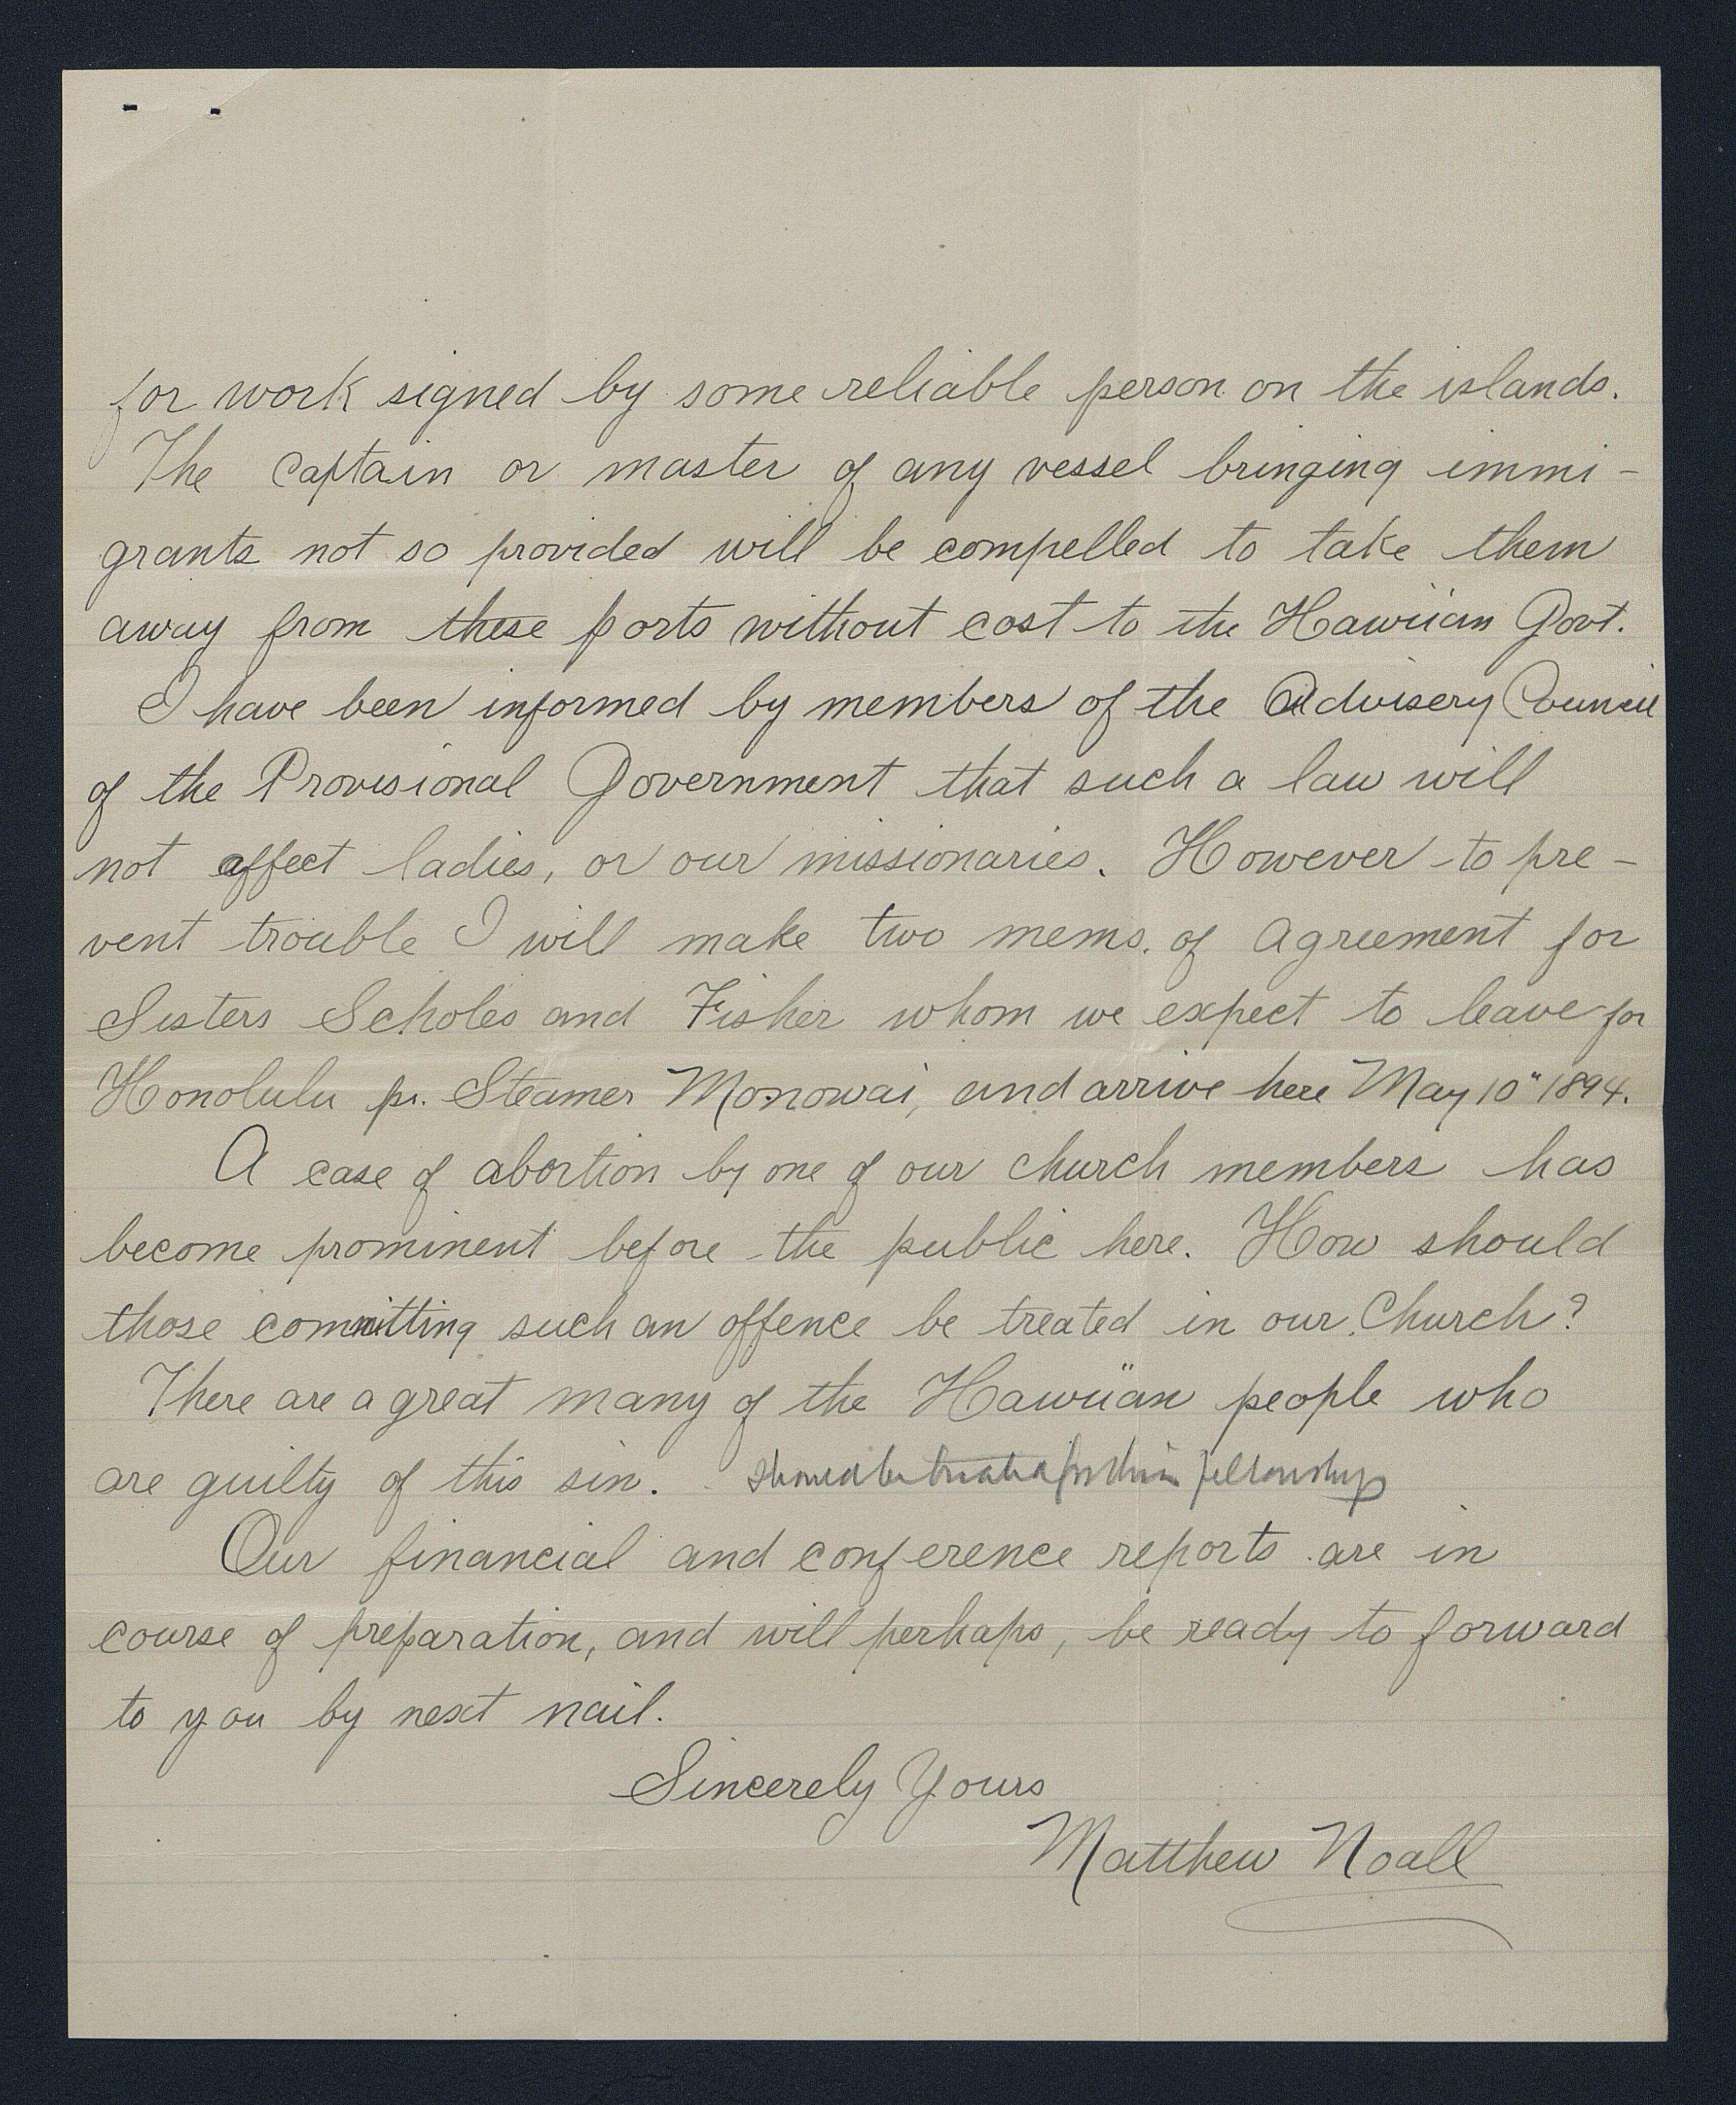 for work signed by some reliable person on the islands.
The captain or master of any vessel bringing immi-
grants not so provided will be compelled to take them
away from these ports without cost to the Hawiian Govt.
I have been informed by members of the Advisery Council
of the Provisional Government that such a law will
not affect ladies, or our missionaries. However to pre-
vent trouble I will make two mems. of agreement for
Sisters Scholes and Fisher whom we expect to leave for
Honolulu pr. Steamer Monowai, and arrive here May 10" 1894.
A case of abortion by one of our church members has
become prominent before the public here. How should
those committing such an offence be treated in our Church?
There are a great many of the Hawiian people who
are guilty of this sin. should be tried for their fellowship
Our financial and conference reports are in
course of preparation, and will perhaps, be ready to forward
to you by next mail.
Sincerely Yours
Matthew Noall